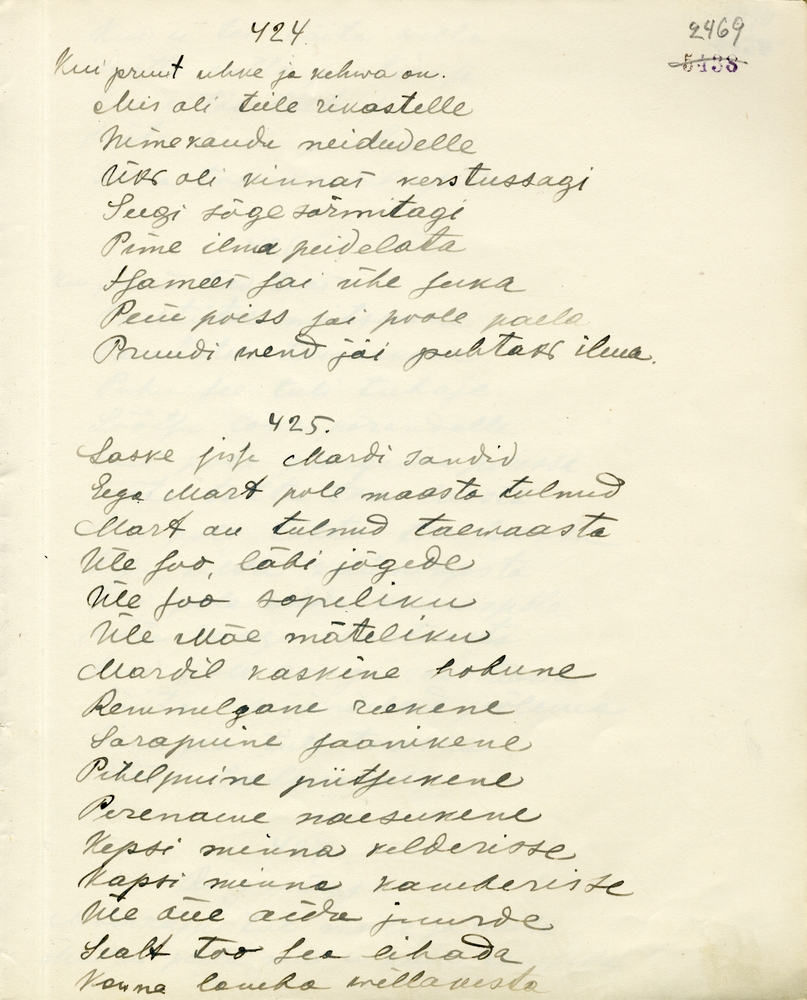 424.
2469
5438
Kui pruut uhke ja kehwa on.
Mis oli teile rikastelle
Nimekandu neidudelle
Üks oli kinnas kerstussagi
Seegi sõge sõrmitagi
Pime ilma peidelata
Äjamees sai ühe suka
Peiu poiss sai poole paela
Pruudi wend jäi puhtaks ilma.
425.
Laske sisse Mardi sandid
Ega Mart pole maasta tulnud
Mart on tulnud taewaasta
Üle soo, läbi jõgede
Üle soo sopeliku
Üle Mäe mäteliku
Mardil kaskine hobune
Remmelgane reekene
Sarapuine saanikene
Pihelpuine piitsukene
Perenaine naesukene
Kepsi minna kelderisse
Kapsi minna kamberisse
Üle õue aida juurde
Sealt too sea lihada
Kanna lamba willakesta